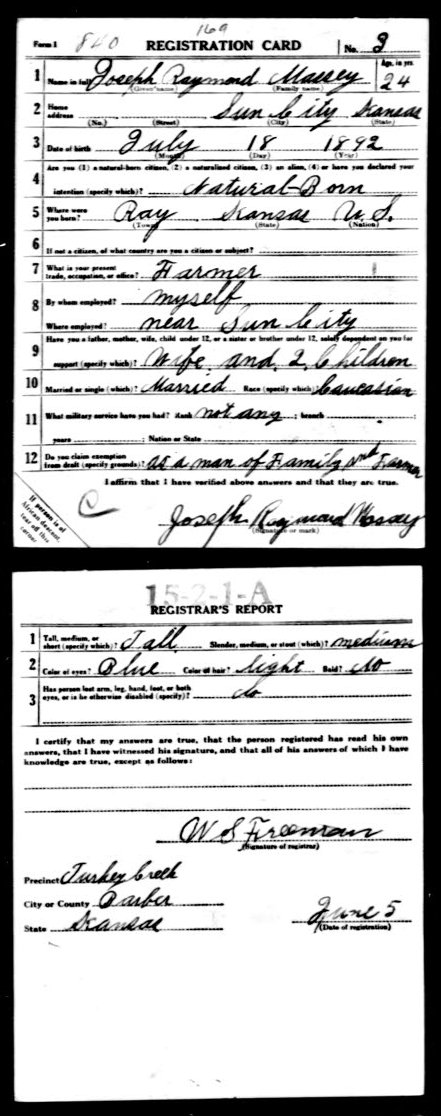 169
Form 1 840 REGISTRATION CARD No. 3
1 Name in full Joseph Raymond Massey Age, in yrs. 24
(Given name) (Family name)
2 Home address Sun City Kansas
(No.) (Street) (City) (State)
3 Date of birth July 18 1892
(Month) (Day) (Year)
4 Are you (1) a natural-born citizen, (2) a naturalized citizen, (3) an alien, (4) or have you declared your
intention (specify which)? Natural-Born
5 Where were you born? Ray Kansas U.S.
(Town) (State) (Nation)
6 If not a citizen, of what country are you a citizen or subject?
7 What is your present trade, occupation, or office? Farmer
8 By whom employed? myself
Where employed? near Sun City
9 Have you a father, mother, wife, child under 12, or a sister or brother under 12, solely dependent on you for
support (specify which)? Wife and 2 Children
10 Married or single (which)? Married Race (specify which)? Caucasian
11 What military service have you had? Rank not any ; branch ;
years ; Nation or State
12 Do you claim exemption from draft (specify grounds)? as a man of Family and Farmer
I affirm that I have verified above answers and that they are true.
C
If person is of African descent, tear off this corner
Joseph Raymond Massey
(Signature or mark)
15-2-1-A
REGISTRAR'S REPORT
1 Tall, medium, or short (specify which)? Tall Slender, medium, or stout (which)? medium
2 Color of eyes? Blue Color of hair? light Bald? No
3 Has person lost arm, leg, hand, foot, or both eyes, or is he otherwise disabled (specify)? No
I certify that my answers are true, that the person registered has read his own
answers, that I have witnessed his signature, and that all of his answers of which I have
knowledge are true, except as follows:
W S Freeman
(Signature of registrar)
Precinct Turkey Creek
City or County Barber
State Kansas June 5
(Date of registration)